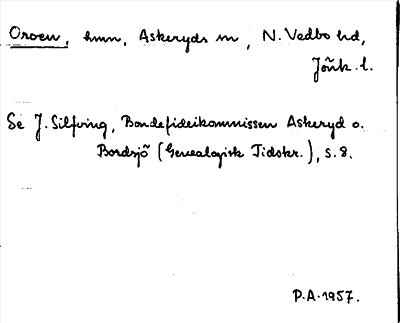 Oroen, hmn, Askeryds sn, N. Vedbo hd,
Jönk. l.
Se J. Silfving, Bondefideikommissen Askeryd o.
Bordsjö (Genealogisk Tidskr.), s. 8.
P.A. 1957.